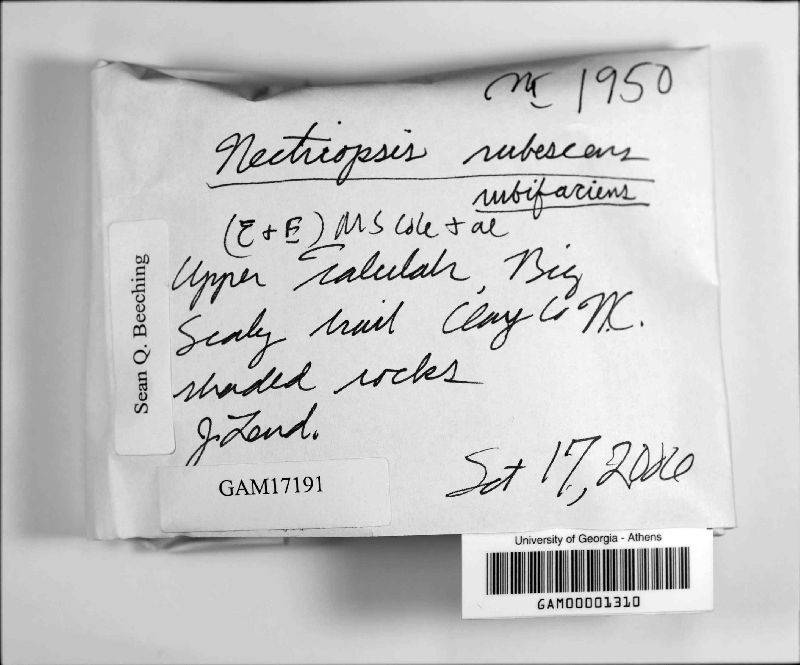 1950
Nectriopsis rubescens
rubifaciens
(E + E) M S Cole + al
Upper Talulah, Big
Scaly trail Clay Co N.C.
shaded rocks
Sean Q. Beeching
GAM17191
17, 2006
University of Georgia - Athens
GAM00001310